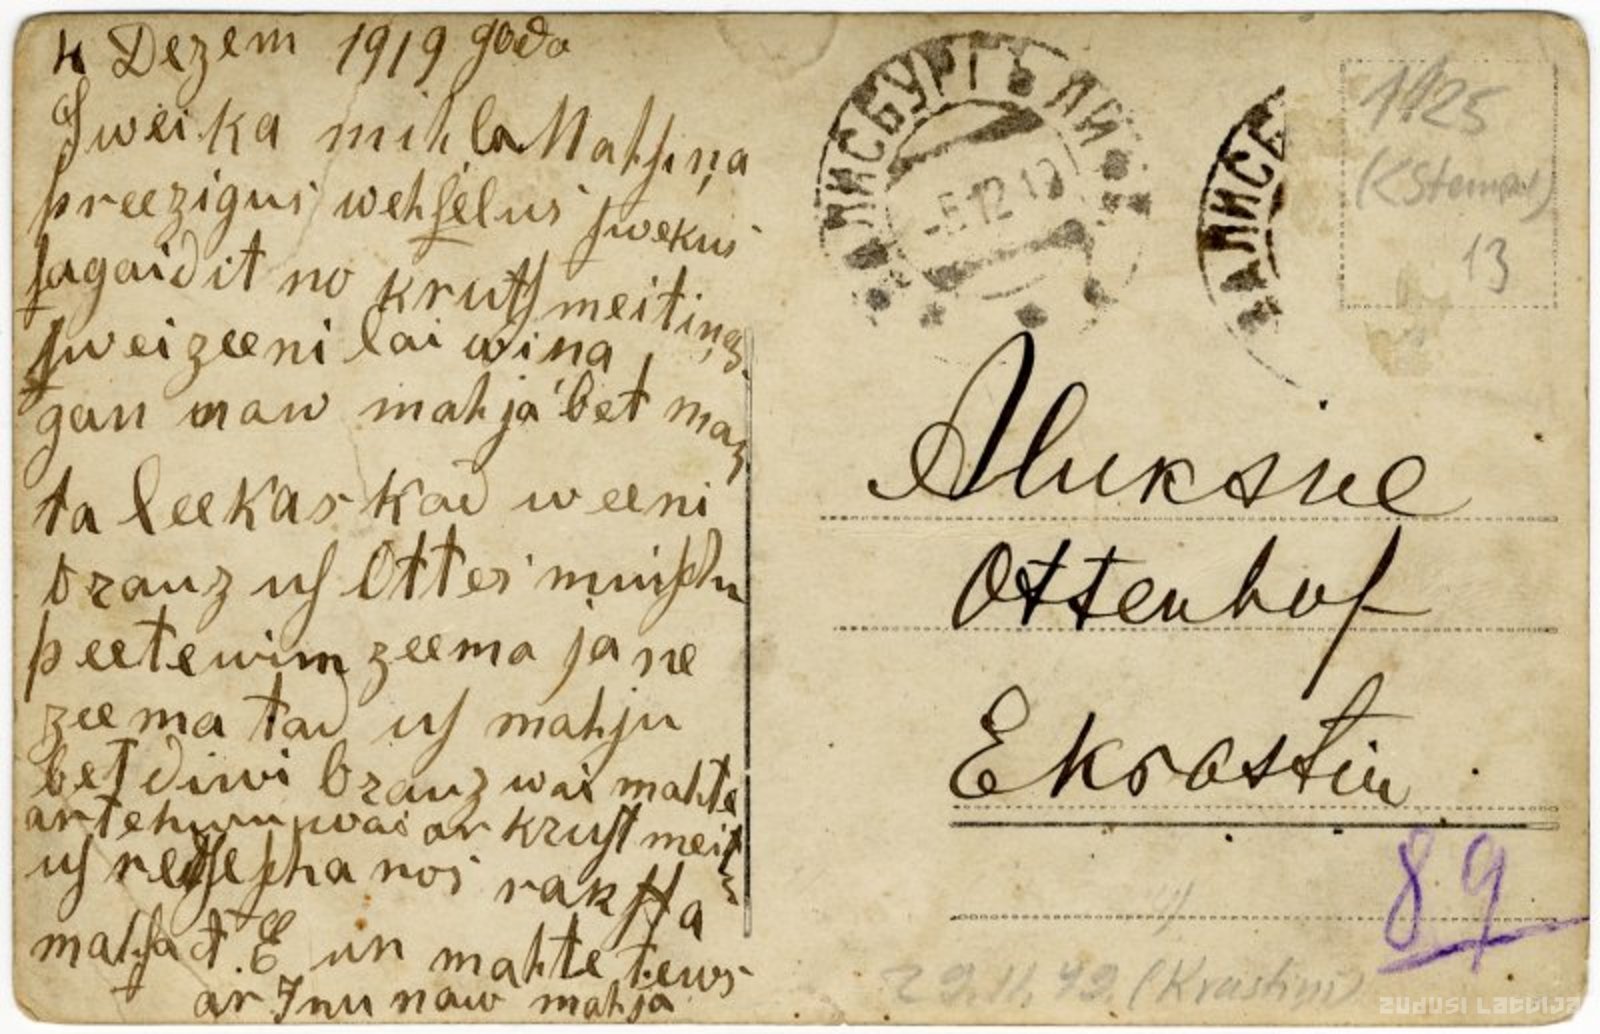 4 Dezem 1919 godo
Sweika mihla Mahsiņa
preezigus wehſelus ſwekus
ſagaidit no kruſtmeitiņas
ſweizeeni lai wina
gan naw mahja bet man
ta leekas kad weeni
brauz uſ Ottes muiſchu
peetewim zeema ja ne
zeema tad uſ mahju
bet diwi brauz wai mahte
ar tehwu wai ar kruſtmeit
uſ rakſta
mahſa E un mahte tews
ar Inu naw mahja
ЗАЛИСБУРГЪ ЛИ
-5.12.19
ЗАЛИСБ
1925
(KStempel)
13
Aluksne
Ottenhof
E Krastin
89
29.11.49. (Krastiņi)
ZUDUSI LATVIJA